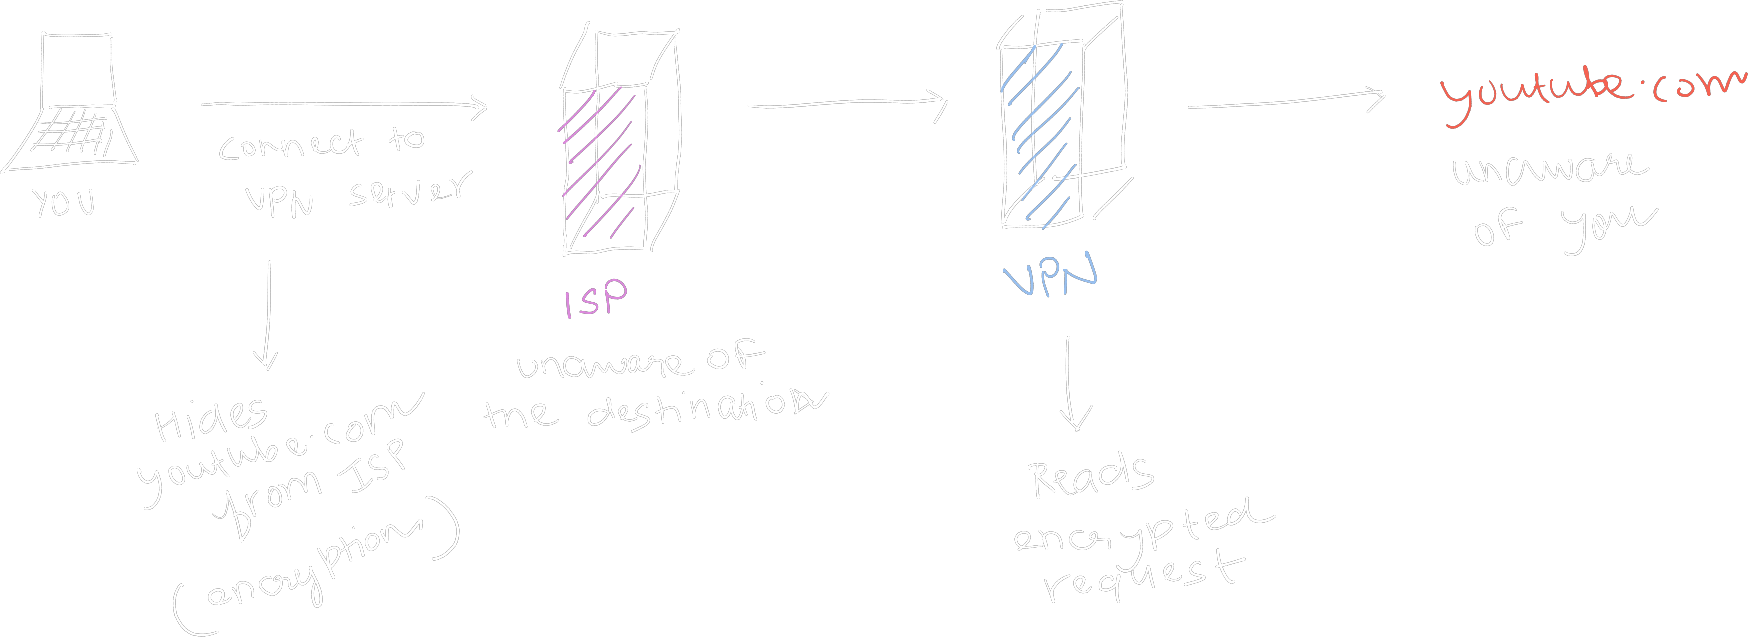 YOU
connect to
VPN server
Hides
youtube.com
from ISP
(encryption)
ISP
unaware of
the destination
VPN
Reads
encrypted
request
youtube.com
unaware
of you